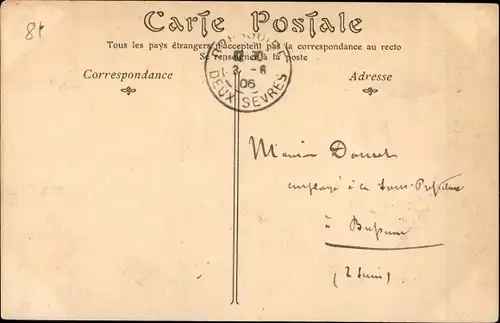 84
Carte Postale
Tous les pays étrangers n'acceptent pas la correspondance au recto
Se renseigner à la poste
Correspondance
Adresse
3 - 6
06
DEUX-SÈVRES
employé à la Sous-Préfecture
à
(2 Sèvres)